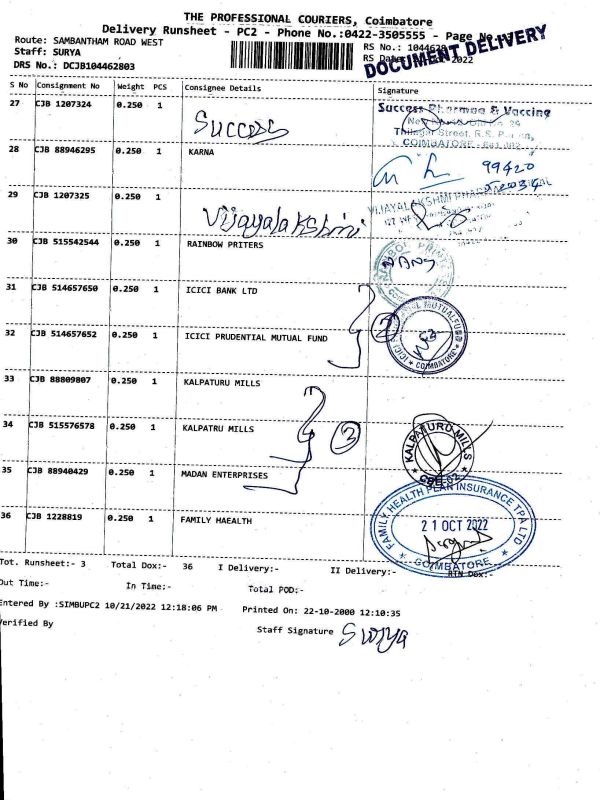 THE PROFESSIONAL COURIERS, Coimbatore
Delivery Runsheet - PC2 - Phone No.:0422-3505555 - Page No.
Route: SAMBANTHAM ROAD WEST
RS No.: 1044628
Staff: SURYA
RS Date: 2022
DOCUMENT DELIVERY
DRS No.: DCJB104462803
S No Consignment No Weight PCS Consignee Details Signature
27 CJB 1207324 0.250 1 Success
Success Pharmaa & Vaccine
Thilagar Street, R.S.
COIMBATORE
28 CJB 88946295 0.250 1 KARNA
99420
29 CJB 1207325 0.250 1 Vijayalakshmi
VIJAYALAKSHMI
30 CJB 515542544 0.250 1 RAINBOW PRITERS
31 CJB 514657650 0.250 1 ICICI BANK LTD
2
32 CJB 514657652 0.250 1 ICICI PRUDENTIAL MUTUAL FUND
ICICI MUTUALFUND COIMBATORE
33 CJB 88809807 0.250 1 KALPATURU MILLS
34 CJB 515576578 0.250 1 KALPATRU MILLS
3
KALPATURU MILLS CBE-02
35 CJB 88940429 0.250 1 MADAN ENTERPRISES
36 CJB 1228819 0.250 1 FAMILY HAEALTH
FAMILY HEALTH PLAN INSURANCE TPA LTD
21 OCT 2022
COIMBATORE
Tot. Runsheet:- 3 Total Dox:- 36 I Delivery:- II Delivery:- RTN Dox:-
Out Time:- In Time:- Total POD:-
Entered By :SIMBUPC2 10/21/2022 12:18:06 PM Printed On: 22-10-2000 12:10:35
Verified By Staff Signature Surya